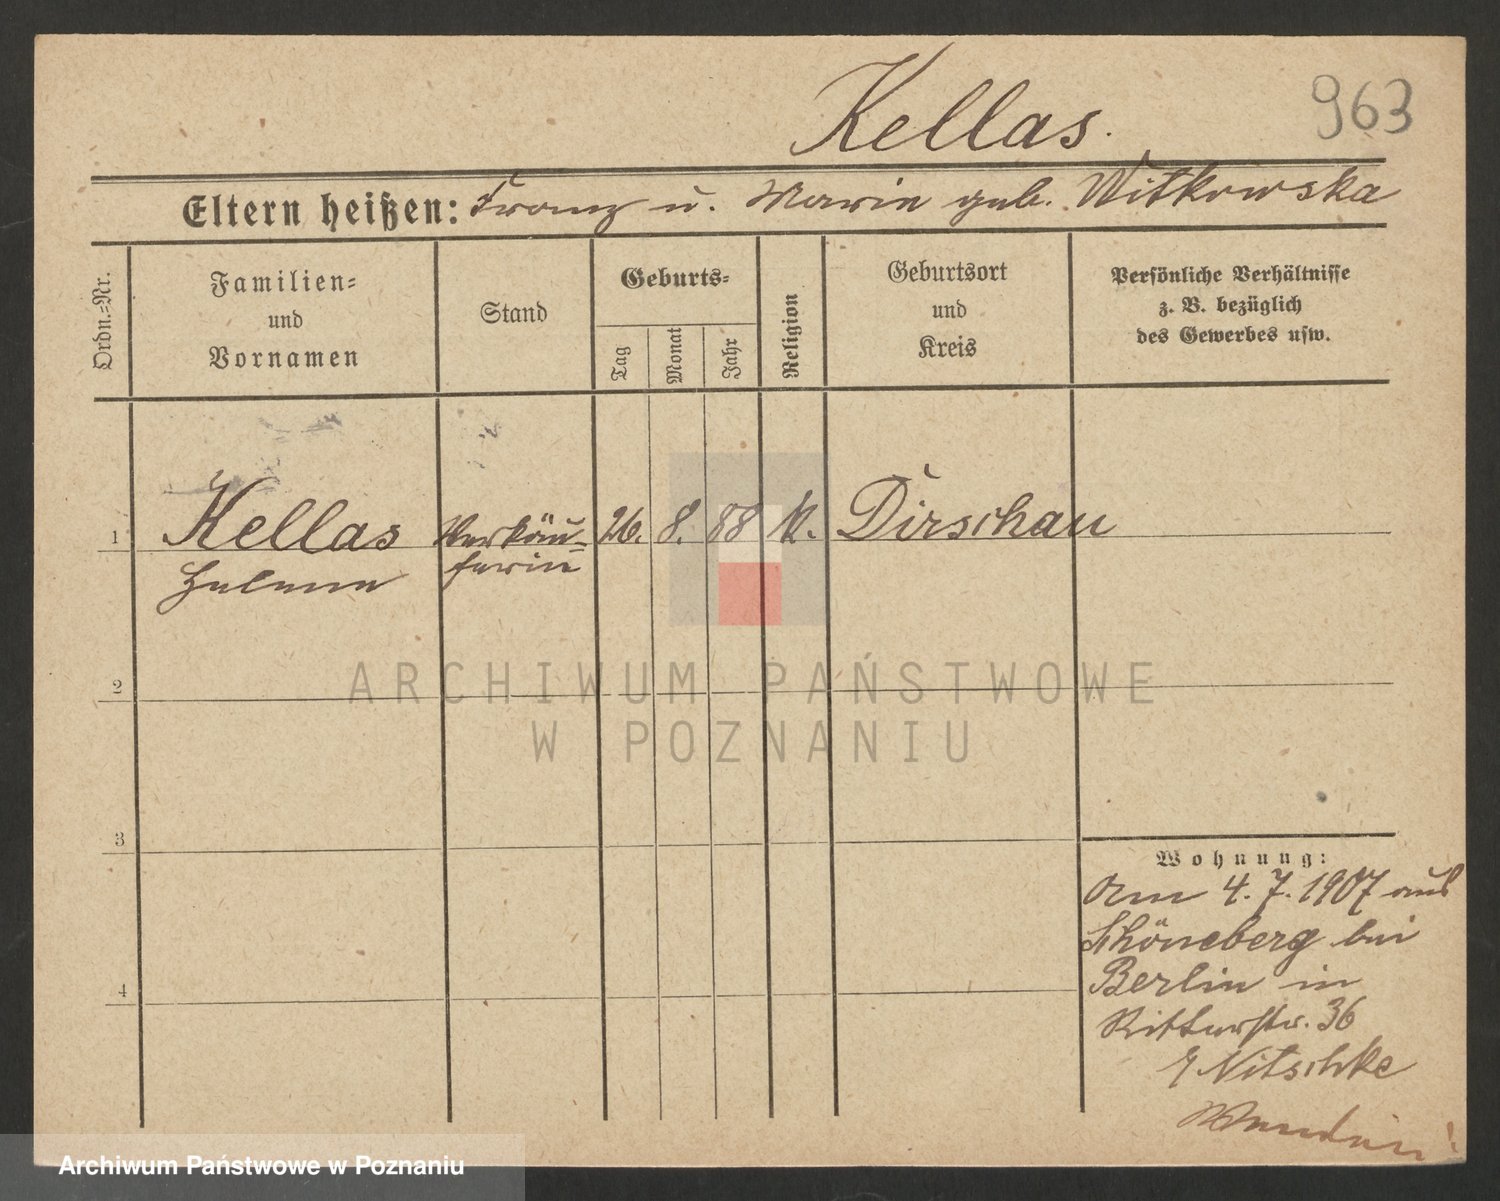 Kellas.
963
Eltern heißen: Franz u. Marie geb. Witkowska
Ordn.=Nr.
Familien=
und
Vornamen
Stand
Geburts=
Tag
Monat
Jahr
Religion
Geburtsort
und
Kreis
Persönliche Verhältnisse
z. B. bezüglich
des Gewerbes usw.
1
Kellas
Helene
Verkäu=
ferin
26. 8. 88 k. Dirschau
2
ARCHIWUM PAŃSTWOWE
W POZNANIU
3
4
Wohnung:
Am 4. 7. 1907 aus
Schöneberg bei
Berlin in
Ritterstr. 36
Nitschke
Archiwum Państwowe w Poznaniu